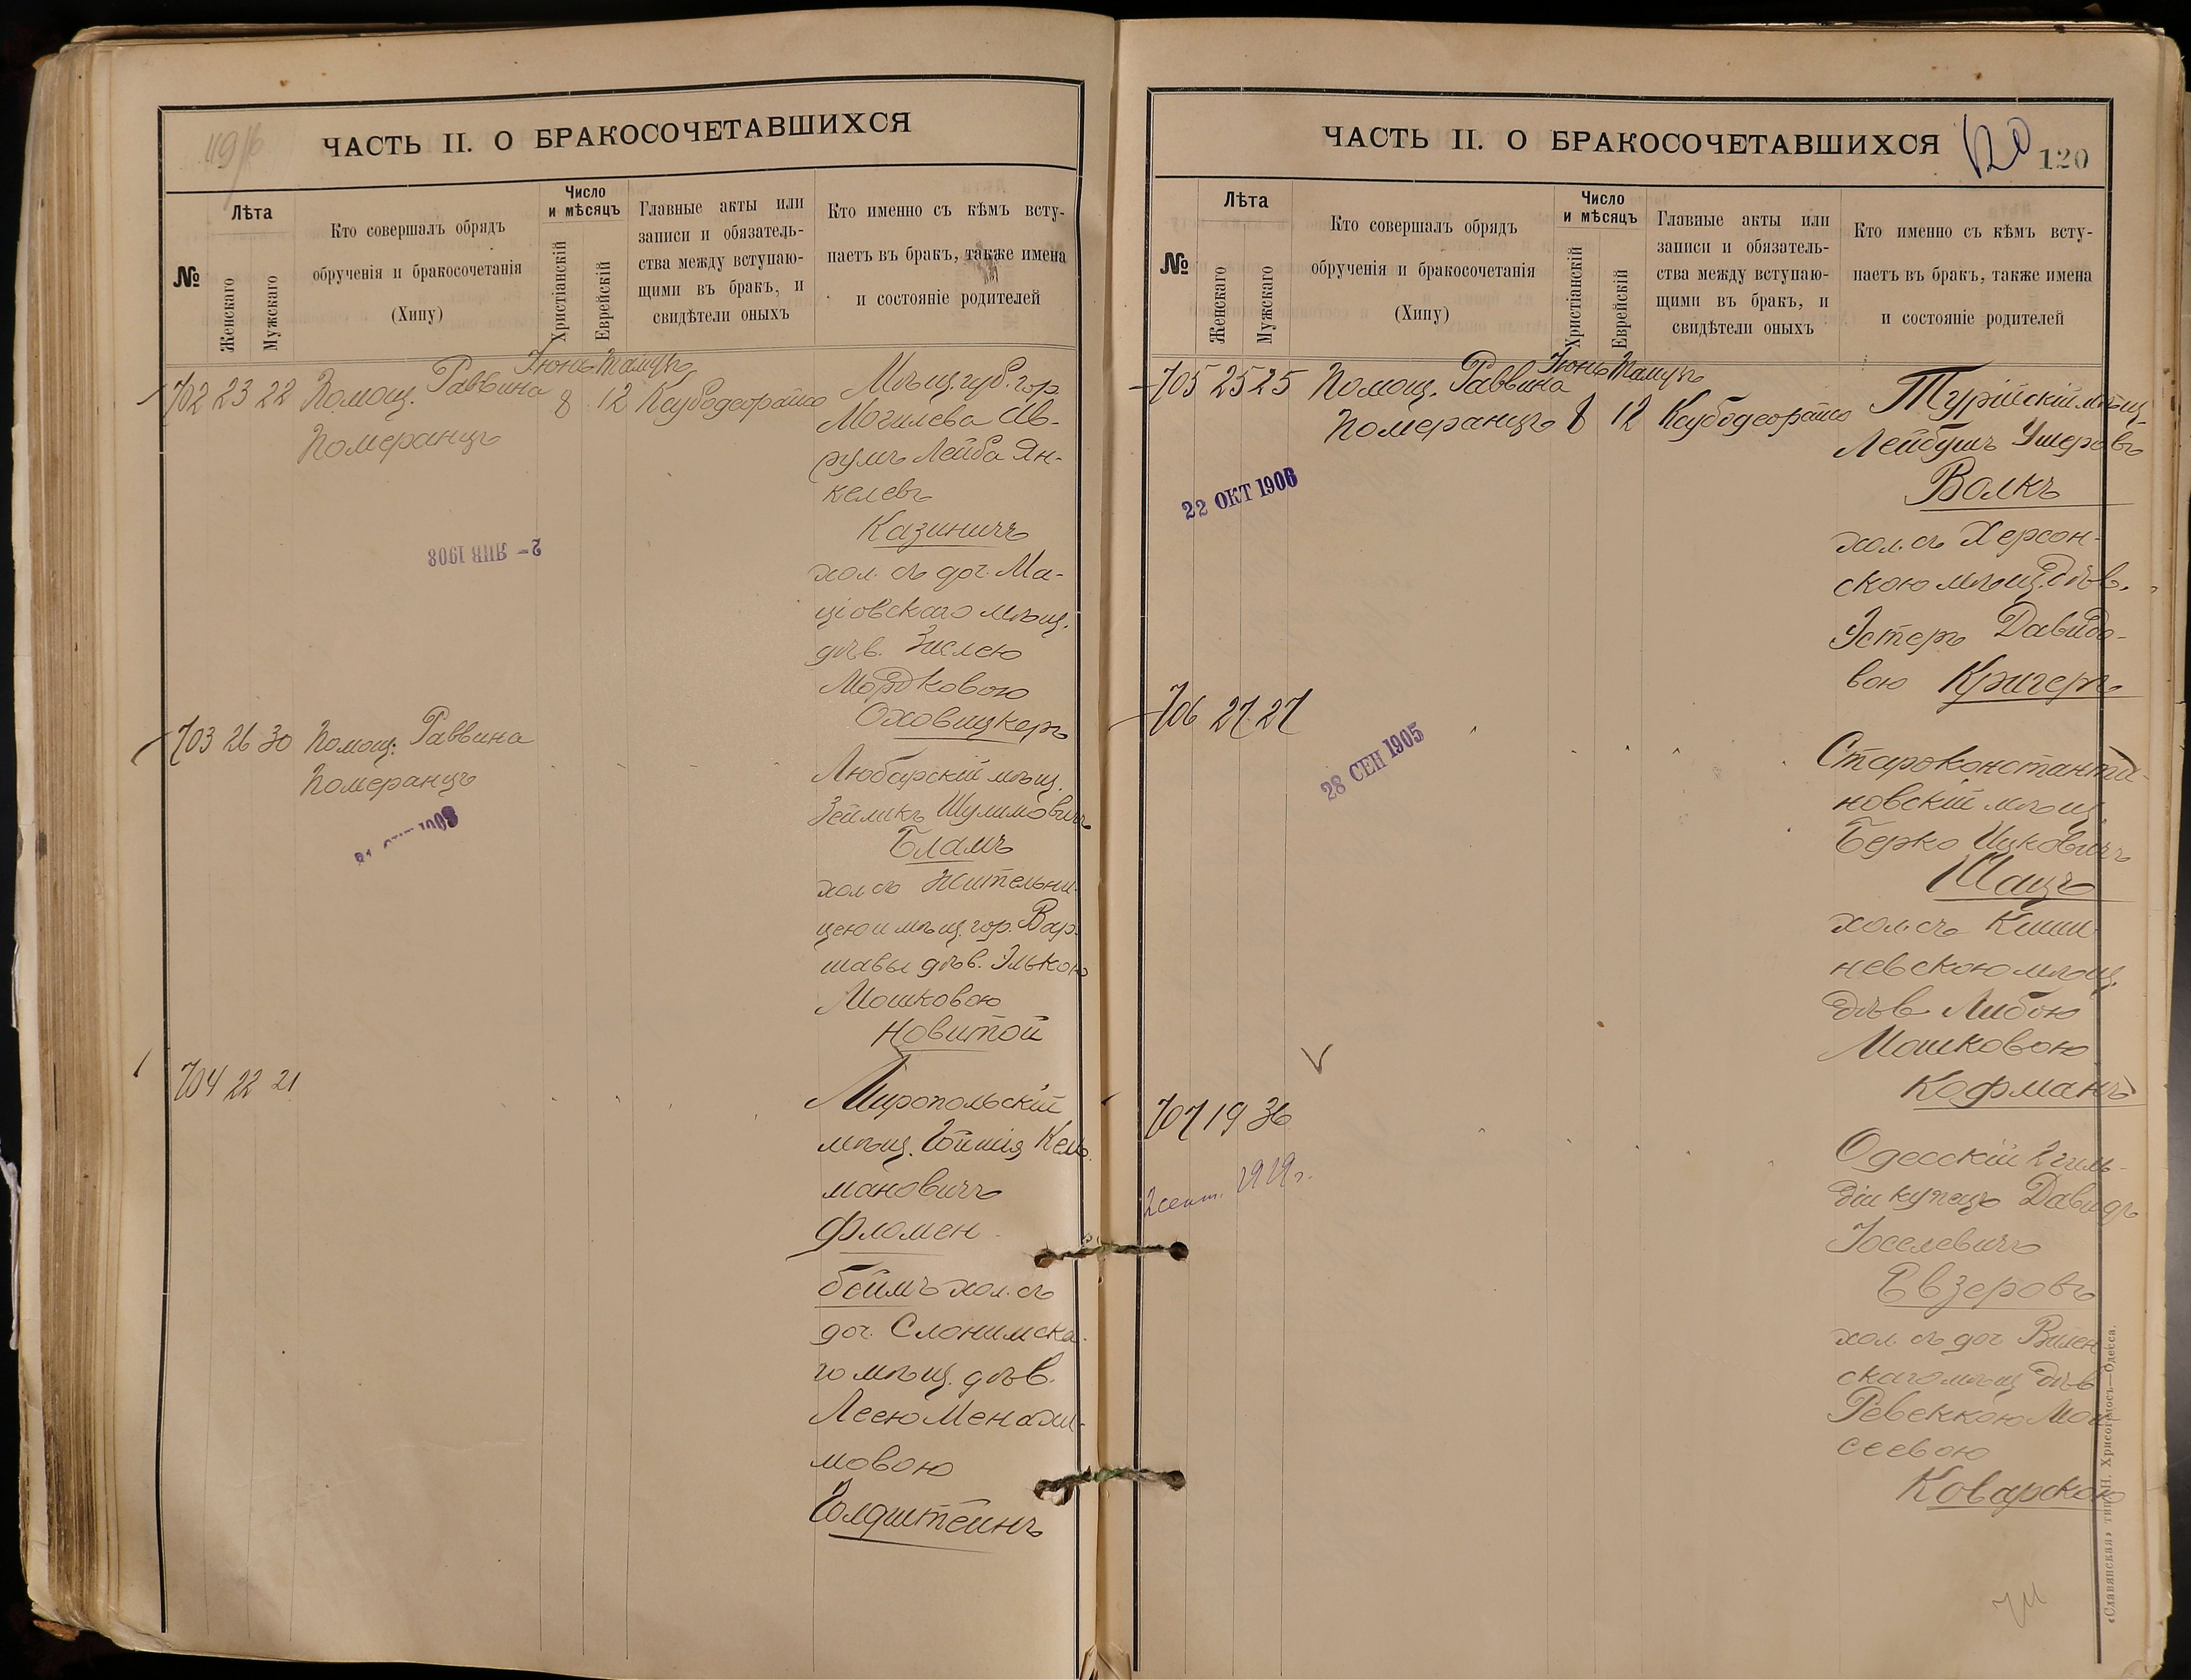 119 б
ЧАСТЬ II. О БРАКОСОЧЕТАВШИХСЯ
№
Лѣта
Женскаго
Мужскаго
Кто совершалъ обрядъ
обрученія и бракосочетанія
(Хипу)
Число
и мѣсяцъ
Христіанскій
Еврейскій
Главные акты или
записи и обязатель-
ства между вступаю-
щими въ бракъ, и
свидѣтели оныхъ
Кто именно съ кѣмъ всту-
паетъ въ бракъ, также имена
и состояніе родителей
Іюнь Тамузъ
702 23 22 Помощ. Раввина 8 12
Померанцъ
Мѣщ. губ. гор.
Могилева Ав-
румъ Лейба Ян-
келевъ
Казиничъ
хол. съ доч. Ма-
ціовскаго мѣщ.
дѣв. Зислею
Мордковою
Оховицкеръ
2- ЯНВ 1908
703 26 30 Помощ. Раввина
Померанцъ
Любарскій мѣщ.
Зейликъ Шулимовичъ
Бламъ
хол съ Жительни-
цею и мѣщ. гор. Вар-
шавы дѣв. Элькою
Мошковою
Новитой
704 22 21
Миропольскій
мѣщ. Гойшія Кель-
мановичъ
Фломен-
боймъ хол. съ
доч. Слонимска-
го мѣщ. дѣв.
Леею Менахи-
мовою
Голдштейнъ
ЧАСТЬ II. О БРАКОСОЧЕТАВШИХСЯ
120
120
№
Лѣта
Женскаго
Мужскаго
Кто совершалъ обрядъ
обрученія и бракосочетанія
(Хипу)
Число
и мѣсяцъ
Христіанскій
Еврейскій
Главные акты или
записи и обязатель-
ства между вступаю-
щими въ бракъ, и
свидѣтели оныхъ
Кто именно съ кѣмъ всту-
паетъ въ бракъ, также имена
и состояніе родителей
Іюнь Тамузъ
705 25 25 Помощ. Раввина
Померанцъ 8 12
Турійскій мѣщ.
Лейбушъ Ушеровъ
Волкъ
хол. съ Херсон-
скою мѣщ. дѣв.
Эстеръ Давидо-
вою Кригеръ
22 ОКТ 1906
706 27 27
28 СЕН 1905
Староконстанти-
новскій мѣщ.
Берко Ицковичъ
Шацъ
хол. съ Киши-
невскою мѣщ.
дѣв Либою
Мошковою
Кофманъ
707 19 36
2 сент. 1919 г.
Одесскій 2 гиль-
діи купецъ Давидъ
Іоселевичъ
Евзеровъ
хол. съ доч Вилен
скаго мѣщ дѣв
Ревеккою Мои-
сеевою
Коварскою
«Славянская» тип. Н. Хрисогелосъ—Одесса.